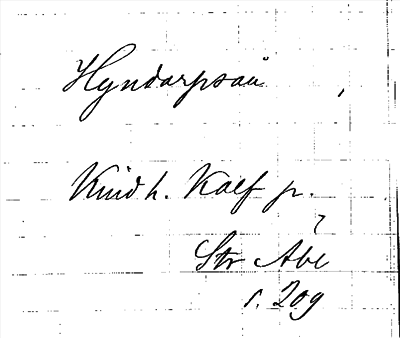 Hyndarpsåu
Kindh. Kalf p.
Str Abl
s. 209